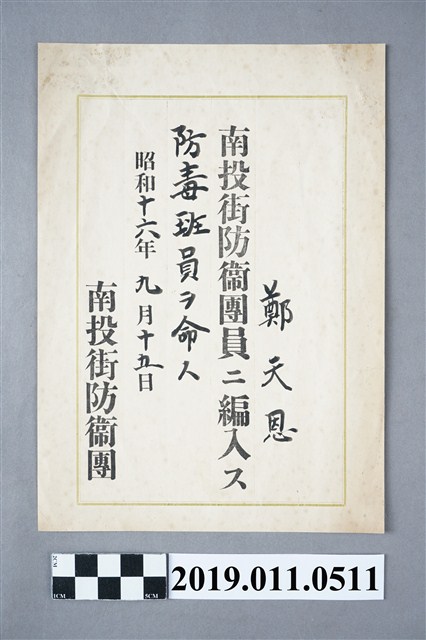 鄭天恩
南投街防衞團員ニ編入ス
防毒班員ヲ命ス
昭和十六年九月十五日
南投街防衞團
1CM
5CM
2019.011.0511